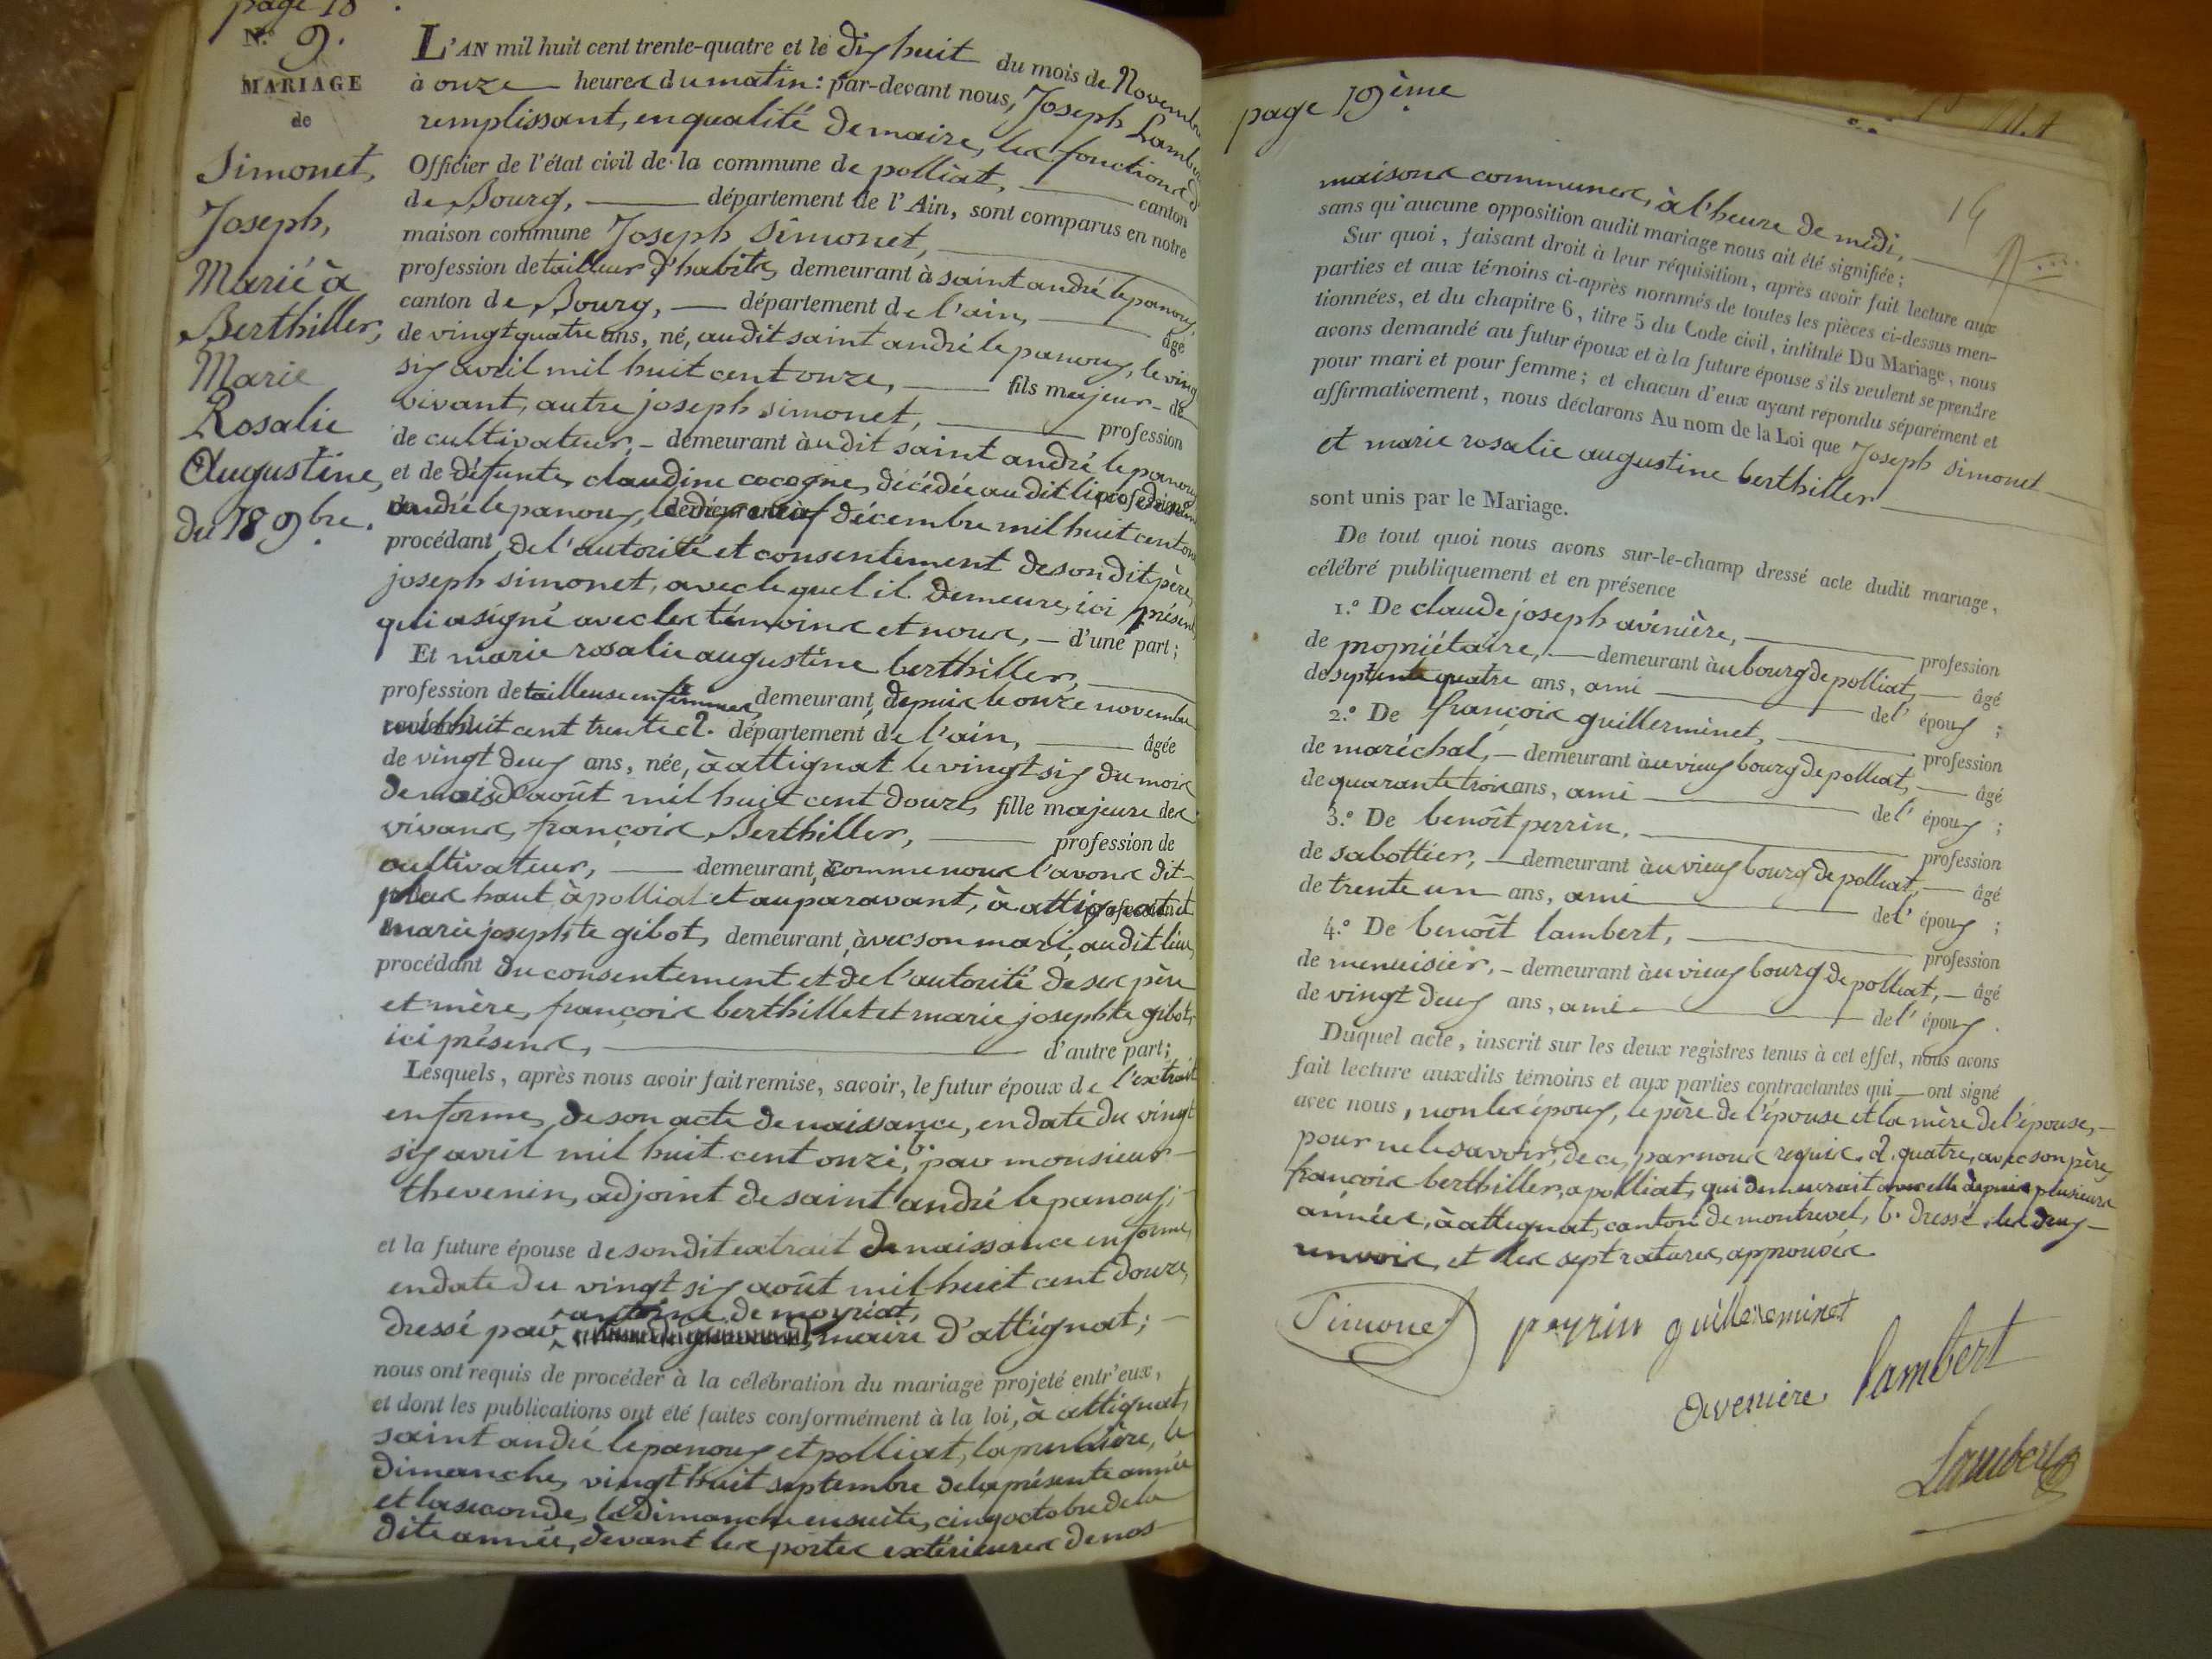 page 18
N.o 9.
MARIAGE
de
Simonet,
Joseph,
Marié à
Berthiller,
Marie
Rosalie
Augustine,
du 18 9bre.
L'AN mil huit cent trente-quatre et le dix huit du mois de Novembre
à onze heures du matin : par-devant nous, Joseph Lambert
remplissant, en qualité de maire, les fonctions d
Officier de l'état civil de la commune de polliat, canton
de Bourg, département de l'Ain, sont comparus en notre
maison commune Joseph Simonet,
profession de tailleur d'habits, demeurant à saint andré le panoux,
canton de Bourg, département de l'ain, âgé
de vingt quatre ans, né, audit saint andré le panoux, le ving
six avril mil huit cent onze, fils majeur de
vivant, autre joseph simonet, profession
de cultivateur, demeurant à udit saint andré le panoux
et de défunte, claudine cocogne, décédée audit lieu
andré le panoux, le décembre mil huit cent onze
procédant de l'autorité et consentement de son dit père,
joseph simonet, avec lequel il demeure, ici présent,
qui a signé avec les témoins et nous, d'une part ;
Et marie rosalie augustine berthiller,
profession de tailleuse en femmes, demeurant, depuis le onze novembre
mil huit cent trente a. département de l'ain, âgée
de vingt deux ans, née, à attignat le vingt six du mois
de mois d'août mil huit cent douze, fille majeure des
vivans, françois Berthiller, profession de
cultivateur, demeurant, comme nous l'avons dit
plus haut à polliat et auparavant, à attignat et
marie josephte gibot, demeurant, avec son mari, audit lieu,
procédant du consentement et de l'autorité de ses père
et mère, françois berthillet et marie josephte gibot,
ici présens, d'autre part ;
Lesquels, après nous avoir fait remise, savoir, le futur époux de l'extrait
en forme, de son acte de naissance, en date du vingt
six avril mil huit cent onze, b. par monsieur
thevenin, adjoint de saint andré le panoux ;
et la future épouse de sondit extrait de naissance en forme,
en date du vingt six août mil huit cent douze,
antoine de moyriat,
dressé par maire d'attignat ;
nous ont requis de procéder à la célébration du mariage projeté entr'eux,
et dont les publications ont été faites conformément à la loi, à attignat,
saint andré le panoux et polliat, la première, le
dimanche, vingt huit septembre de la présente année
et la seconde, le dimanche ensuite, cinq octobre de la
dite année, devant les portes extérieures de nos
page 19ème
14
maisons communes, à l'heure de midi,
sans qu'aucune opposition audit mariage nous ait été signifiée ;
Sur quoi, faisant droit à leur réquisition, après avoir fait lecture aux
parties et aux témoins ci-après nommés de toutes les pièces ci-dessus men-
tionnées, et du chapitre 6, titre 5 du Code civil, intitulé Du Mariage, nous
avons demandé au futur époux et à la future épouse s'ils veulent se prendre
pour mari et pour femme ; et chacun d'eux ayant répondu séparément et
affirmativement, nous déclarons Au nom de la Loi que Joseph simonet
et marie rosalie augustine berthiller
sont unis par le Mariage.
De tout quoi nous avons sur-le-champ dressé acte dudit mariage,
célébré publiquement et en présence
1.o De claude joseph avinière, profession
de propriétaire, demeurant à u bourg de polliat, âgé
de septente quatre ans, ami de l' époux ;
2.o De françois guillerminet, profession
de maréchal, demeurant à u vieux bourg de polliat, âgé
de quarante trois ans, ami de l' époux ;
3.o De benoît perrin, profession
de sabottier, demeurant à u vieux bourg de polliat, âgé
de trente un ans, ami de l' époux ;
4.o De benoît lambert, profession
de menuisier, demeurant à u vieux bourg de polliat, âgé
de vingt deux ans, ami de l' époux.
Duquel acte, inscrit sur les deux registres tenus à cet effet, nous avons
fait lecture auxdits témoins et aux parties contractantes qui ont signé
avec nous, non les époux, le père de l'épouse et la mère de l'épouse,
pour ne le savoir, de ce, par nous requis. a. quatre, avec son père,
françois berthiller, a polliat, qui demeurait avec elle depuis plusieurs
années, à attegnat, canton de montrevel, b. dressé, les deux
renvois, et les sept ratures, approuvés.
Simonet perrin guillereminet
aveniere lambert
Lambert